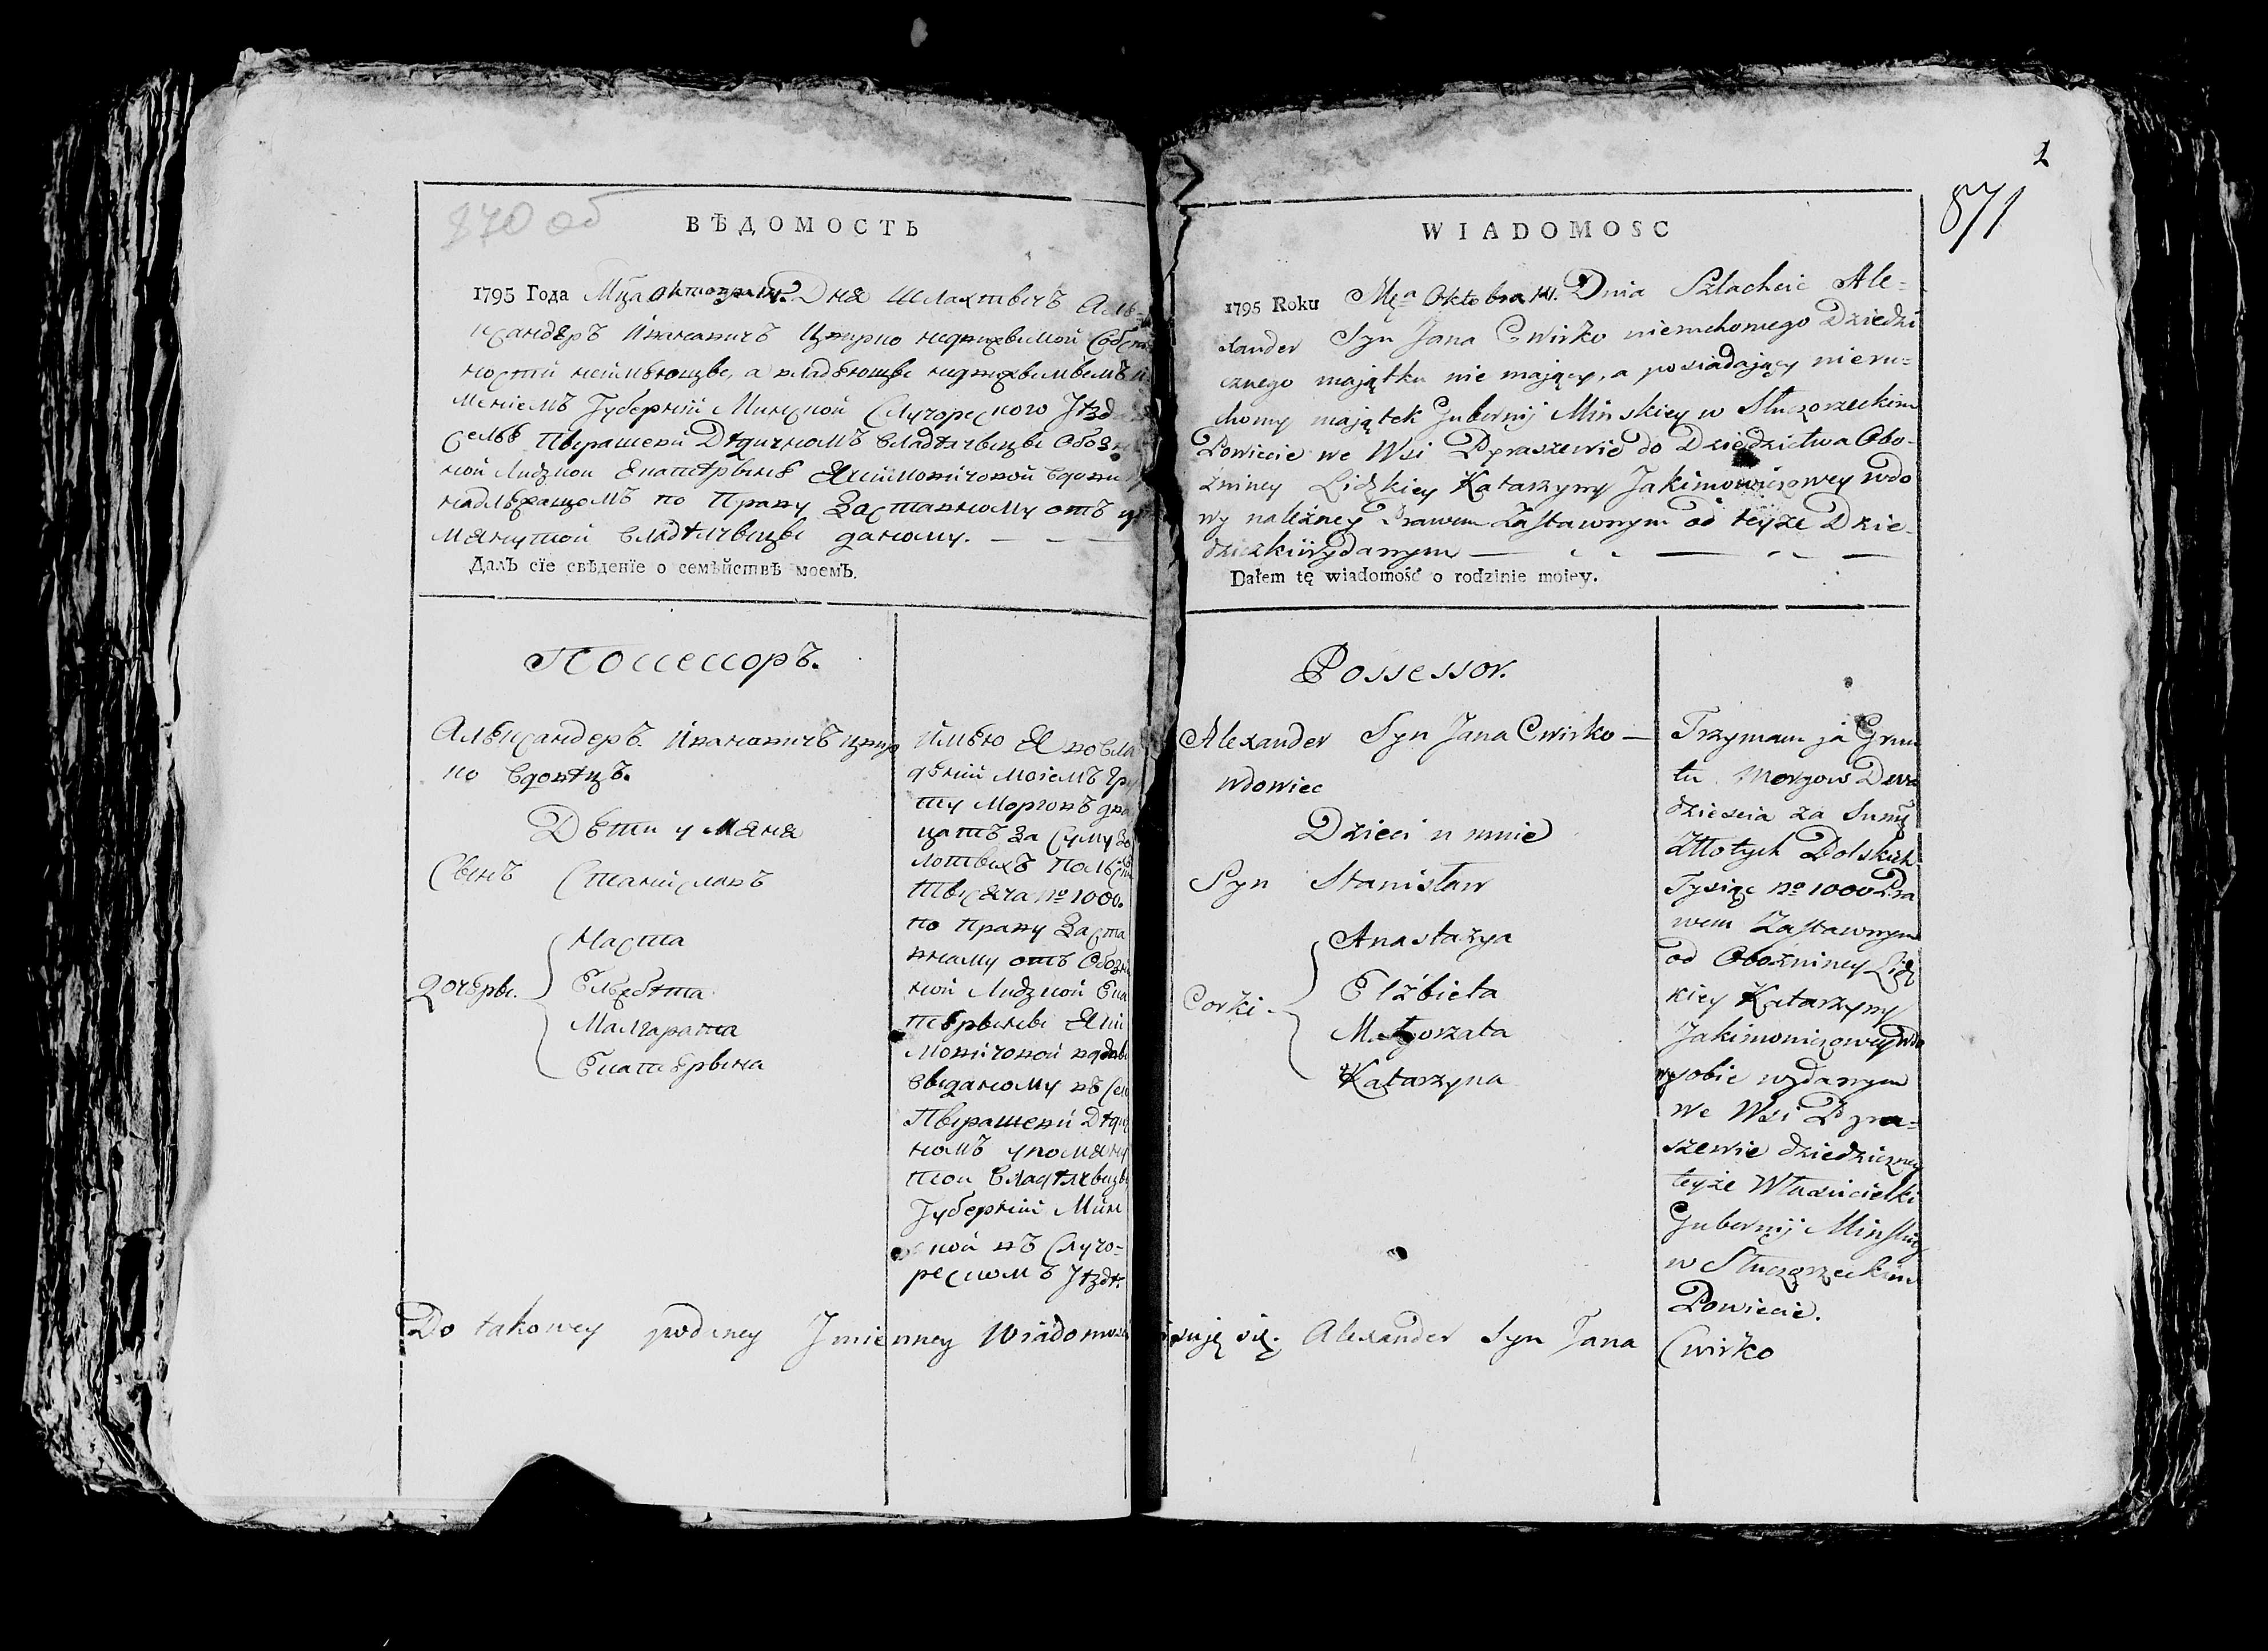 870 об
ВѢДОМОСТЬ
1795 Года Мца Октопра Дня Шлахтичъ Алѣ-
ксандеръ Иванавичъ Цвирко недвихвимой Собст
ности неимѣющве, а владѣющве недвихвимвимъ и
мѣніемъ Губерніи Минской Слуцорескаго Уѣзда
Селѣ Пвирашеви Дѣдичномъ Владѣлвицве Обоз
ной Лидзкой Екатѣрвинѣ Якимовичовой Вдови
надлѣжащомъ по Праву Заставному отъ
мянутой Владѣлвицве даному.
Далъ сїе свѣденїе о семѣйствѣ моемъ.
Поссессоръ.
Алѣксандеръ Иванавичъ Цвир
ко Вдовѣцъ.
Дѣти у Мяня
Свинъ Станиславъ
Дочѣрве.
Наста
Елжбѣта
Малгарата
Екатѣрвина
Имѣю Я во вла
дѣніи моіемъ Гру
ту Моргов два
цать за Суму Зо
лотвихъ Полѣск
Твисяча № 1000.
по Праву Заста
вному отъ Обозн
ной Лидзкой Ека
тѣрвинве Яки
мовичовой вдове
Ввиданому въ Сел
Пвирашеви Дѣдич
номъ упомяну
той Владѣлвицве
Губерніи Мин
ской въ Слуцо-
рескомъ Уѣздѣ.
Do takowey podaney Jmienney Wiadomosci
2
871
WIADOMOSC
1795 Roku Mca Oktobra Dnia Szlachcic Ale-
xander Syn Jana Cwirko nieruchomego Dziedzi
cznego majątku nie mający, a posiadający nieru-
chomy majątek Gubernij Minskiey w Słuczorzeckim
Powiecie we Wsi Pyraszewie do Dziedzictwa Obo-
źniney Lidzkiey Katarzyny Jakimowiczowey wdo
wy należney Prawem Zastawnym od teyże Dzie-
dziczki wydanym
Dałem tę wiadomość o rodzinie moiey.
Possessor.
Alexander Syn Jana Cwirko
wdowiec
Dzieci u mnie
Syn Stanisław
Corki
Anastazya
Elżbieta
Małgorzata
Katarzyna
Trzymam ja Grun
tu Morgow Dwa
dziescia za Sumę
Złłotych Polskich
Tysiąc № 1000 Pra
wem Zastawnym
od Oboźniney Lidz
kiey Katarzyny
Jakimowiczowey wdo
wy sobie wydanym
we Wsi Pyra-
szewie dziedziczney
teyże Własćicielki
Gubernij Minskiey
w Słuczorzeckim
Powiecie.
isuję się. Alexander Syn Jana Cwirko